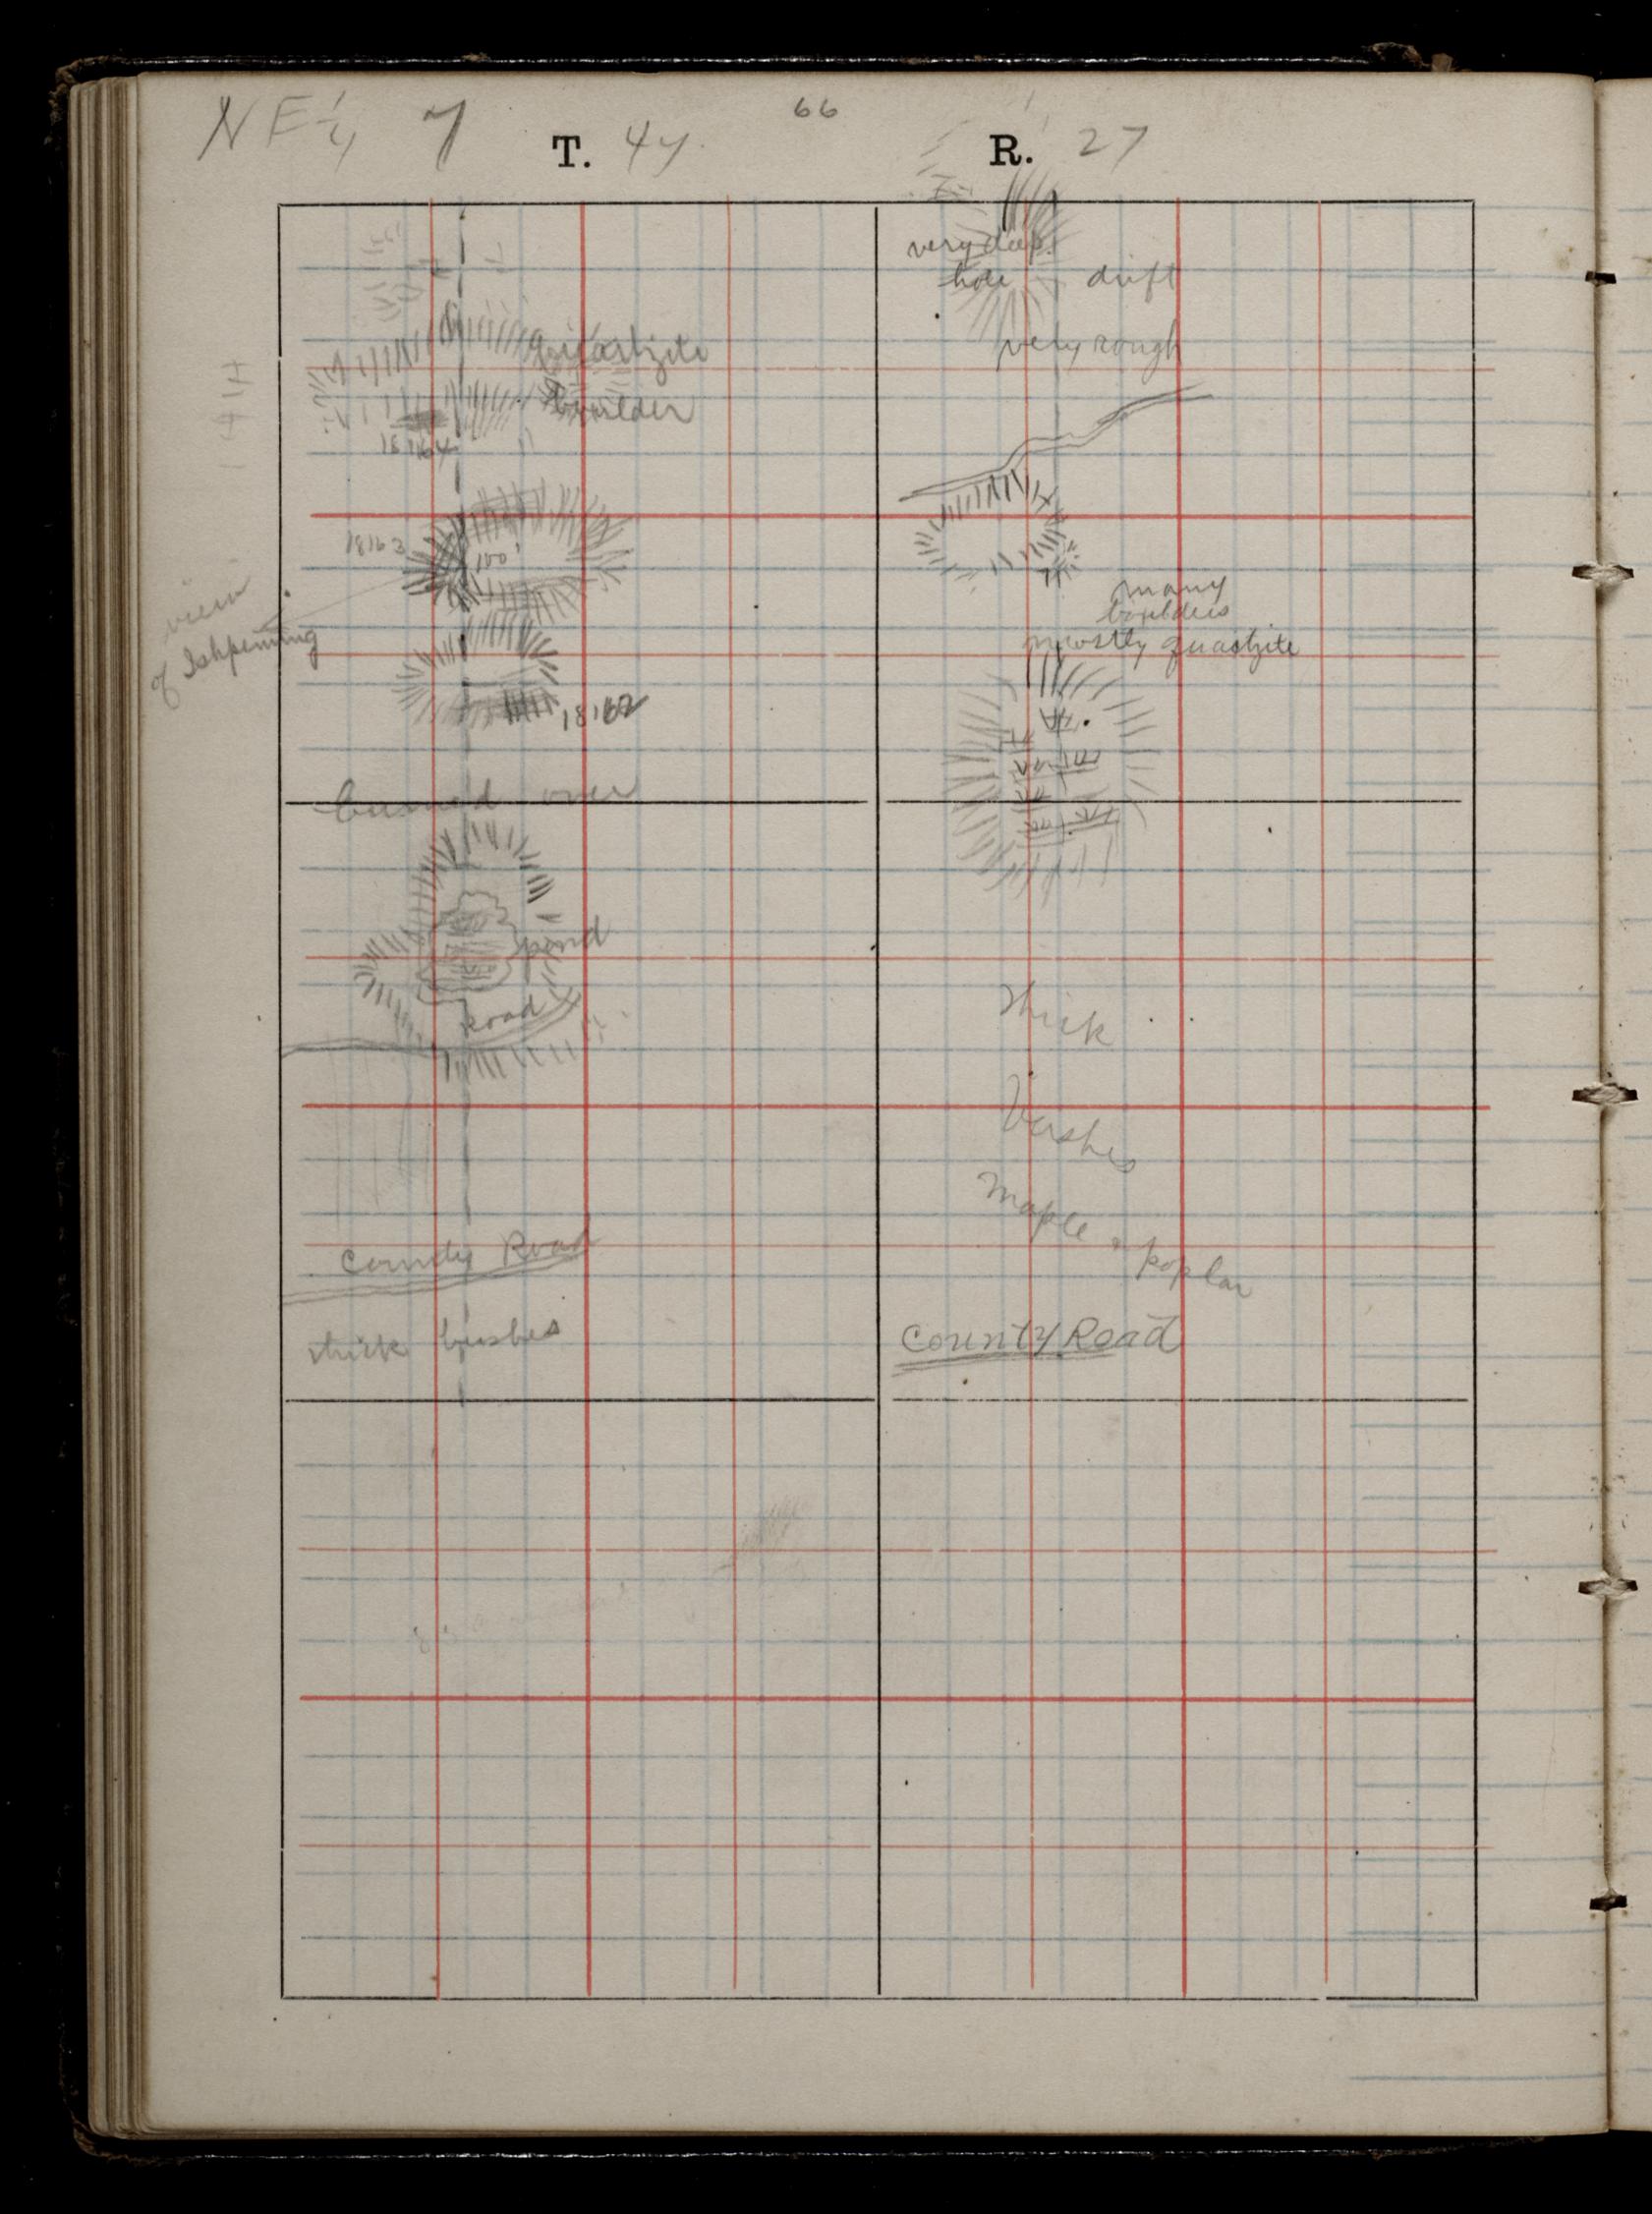 66
NE 1/4 7 T. 47 R. 27
quartzite
boulder
18164
18163
100'
view
of Ishpeming
18162
burned over
pond
Road
County Road
thick bushes
very deep
hole drift
very rough
many
boulders
mostly quartzite
thick
bushes
maple & poplar
County Road